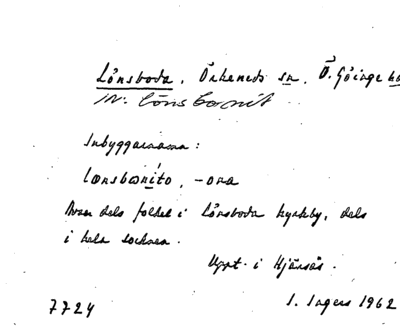 Lönsboda. Örkeneds sn, Ö. Göinge
Inv: lönsbonit
Inbyggarnamn:
lœnsbœnito, -ona
Avser dels folket i Lönsboda kyrkby, dels
i hela socknen.
Uppt. i Hjärsås.
7724 I. Ingers 1962